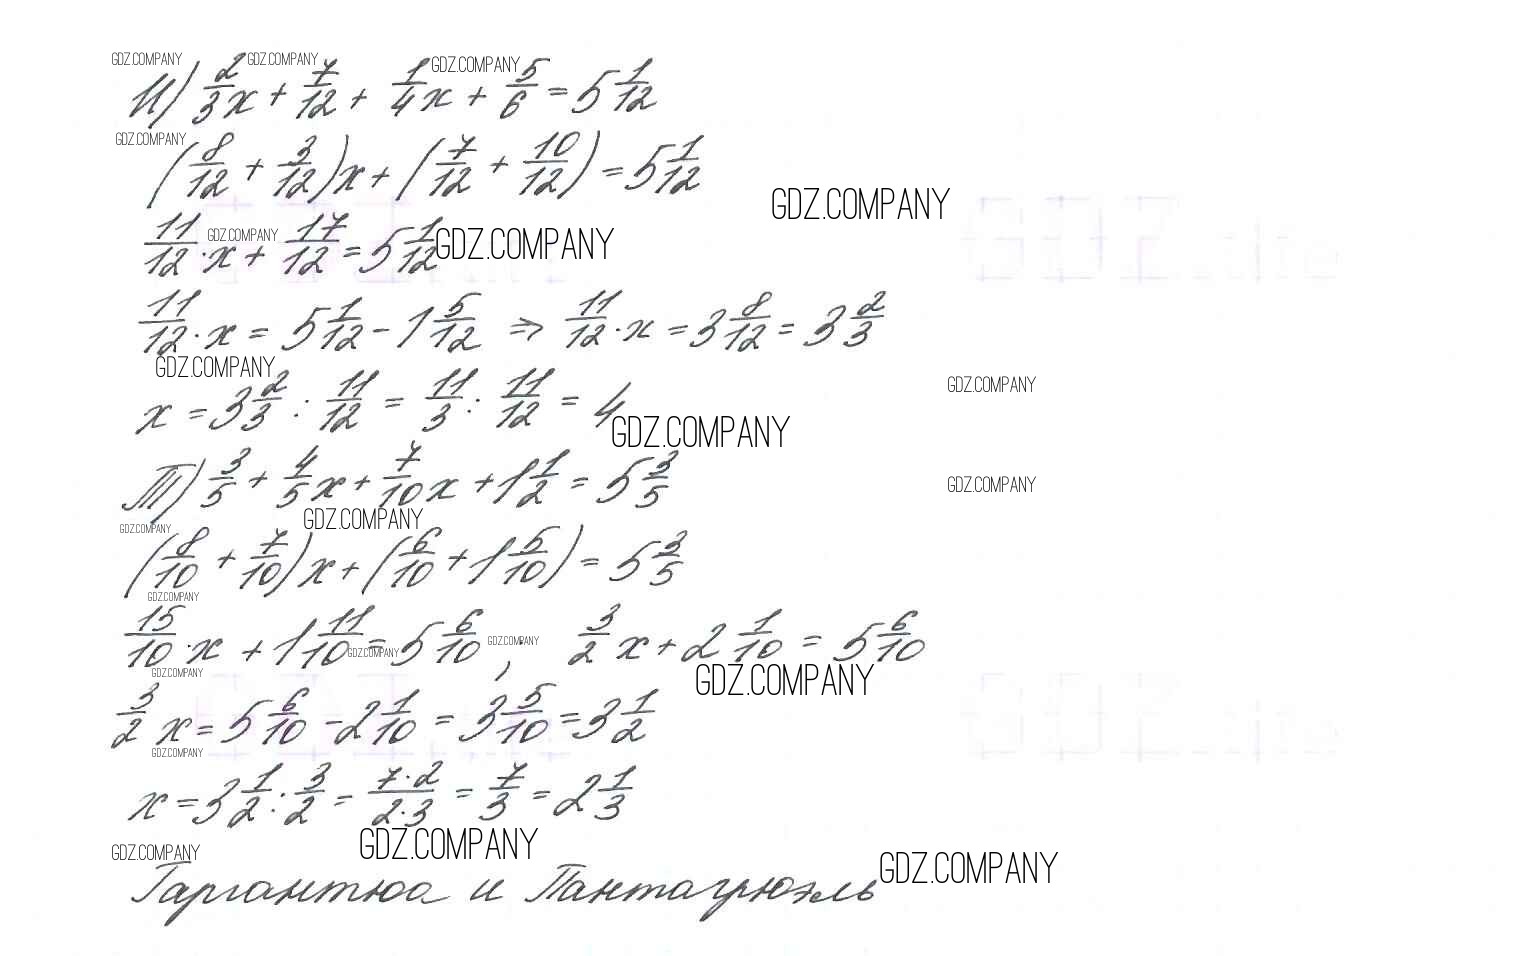 GDZ.COMPANY GDZ.COMPANY GDZ.COMPANY
И) 2/3 x + 7/12 + 1/4 x + 5/6 = 5 1/12
GDZ.COMPANY
(8/12 + 3/12) x + (7/12 + 10/12) = 5 1/12
GDZ.COMPANY
11/12 · x + 17/12 = 5 1/12
GDZ.COMPANY GDZ.COMPANY
11/12 · x = 5 1/12 - 1 5/12 ⇒ 11/12 · x = 3 8/12 = 3 2/3
GDZ.COMPANY GDZ.COMPANY
x = 3 2/3 : 11/12 = 11/3 : 11/12 = 4
GDZ.COMPANY
Т) 3/5 + 4/5 x + 7/10 x + 1 1/2 = 5 3/5
GDZ.COMPANY
GDZ.COMPANY GDZ.COMPANY
(8/10 + 7/10) x + (6/10 + 1 5/10) = 5 3/5
GDZ.COMPANY
15/10 · x + 1 11/10 = 5 6/10 ; 3/2 x + 2 1/10 = 5 6/10
GDZ.COMPANY GDZ.COMPANY
GDZ.COMPANY GDZ.COMPANY
3/2 x = 5 6/10 - 2 1/10 = 3 5/10 = 3 1/2
GDZ.COMPANY
x = 3 1/2 : 3/2 = 7·2/2·3 = 7/3 = 2 1/3
GDZ.COMPANY GDZ.COMPANY GDZ.COMPANY
Гаргантюа и Пантагрюэль